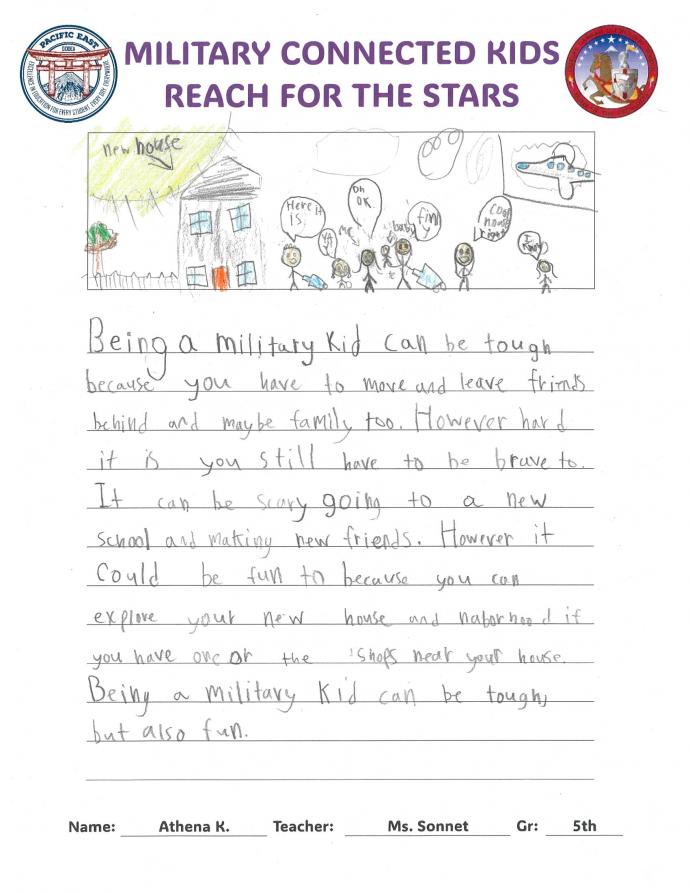 PACIFIC EAST
DODEA
EXCELLENCE IN EDUCATION FOR EVERY STUDENT, EVERY DAY, EVERYWHERE
MILITARY CONNECTED KIDS
REACH FOR THE STARS
new house
Here it
IS
ya
me
oh
OK.
baby
Cool
house
right
I
Being a military Kid can be tough
because you have to move and leave friends
behind and maybe family too. However hard
it is you still have to be brave to.
It can be scary going to a new
school and making new friends. However it
Could be fun to because you can
explore your new house and naborhood if
you have one or the shops near your house.
Being a military Kid can be tough,
but also fun.
Name: Athena K. Teacher: Ms. Sonnet Gr: 5th